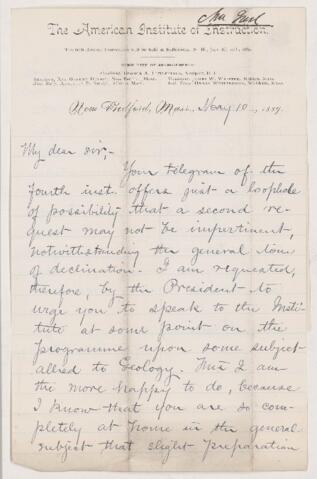 The American Institute of Instruction.
New Bedford, Mass., May 10, 1889.
My dear Sir;-
Your telegram of the
fourth inst. offers just a loophole
of possibility that a second re-
quest may not be impertinent,
notwithstanding the general tone
of declination. I am requested,
therefore, by the President to
urge you to speak to the Insti-
tute at some point on the
programme upon some subject
allied to Geology. This I am
the more happy to do, because
I know that you are so com-
pletely at home in the general
subject that slight preparation